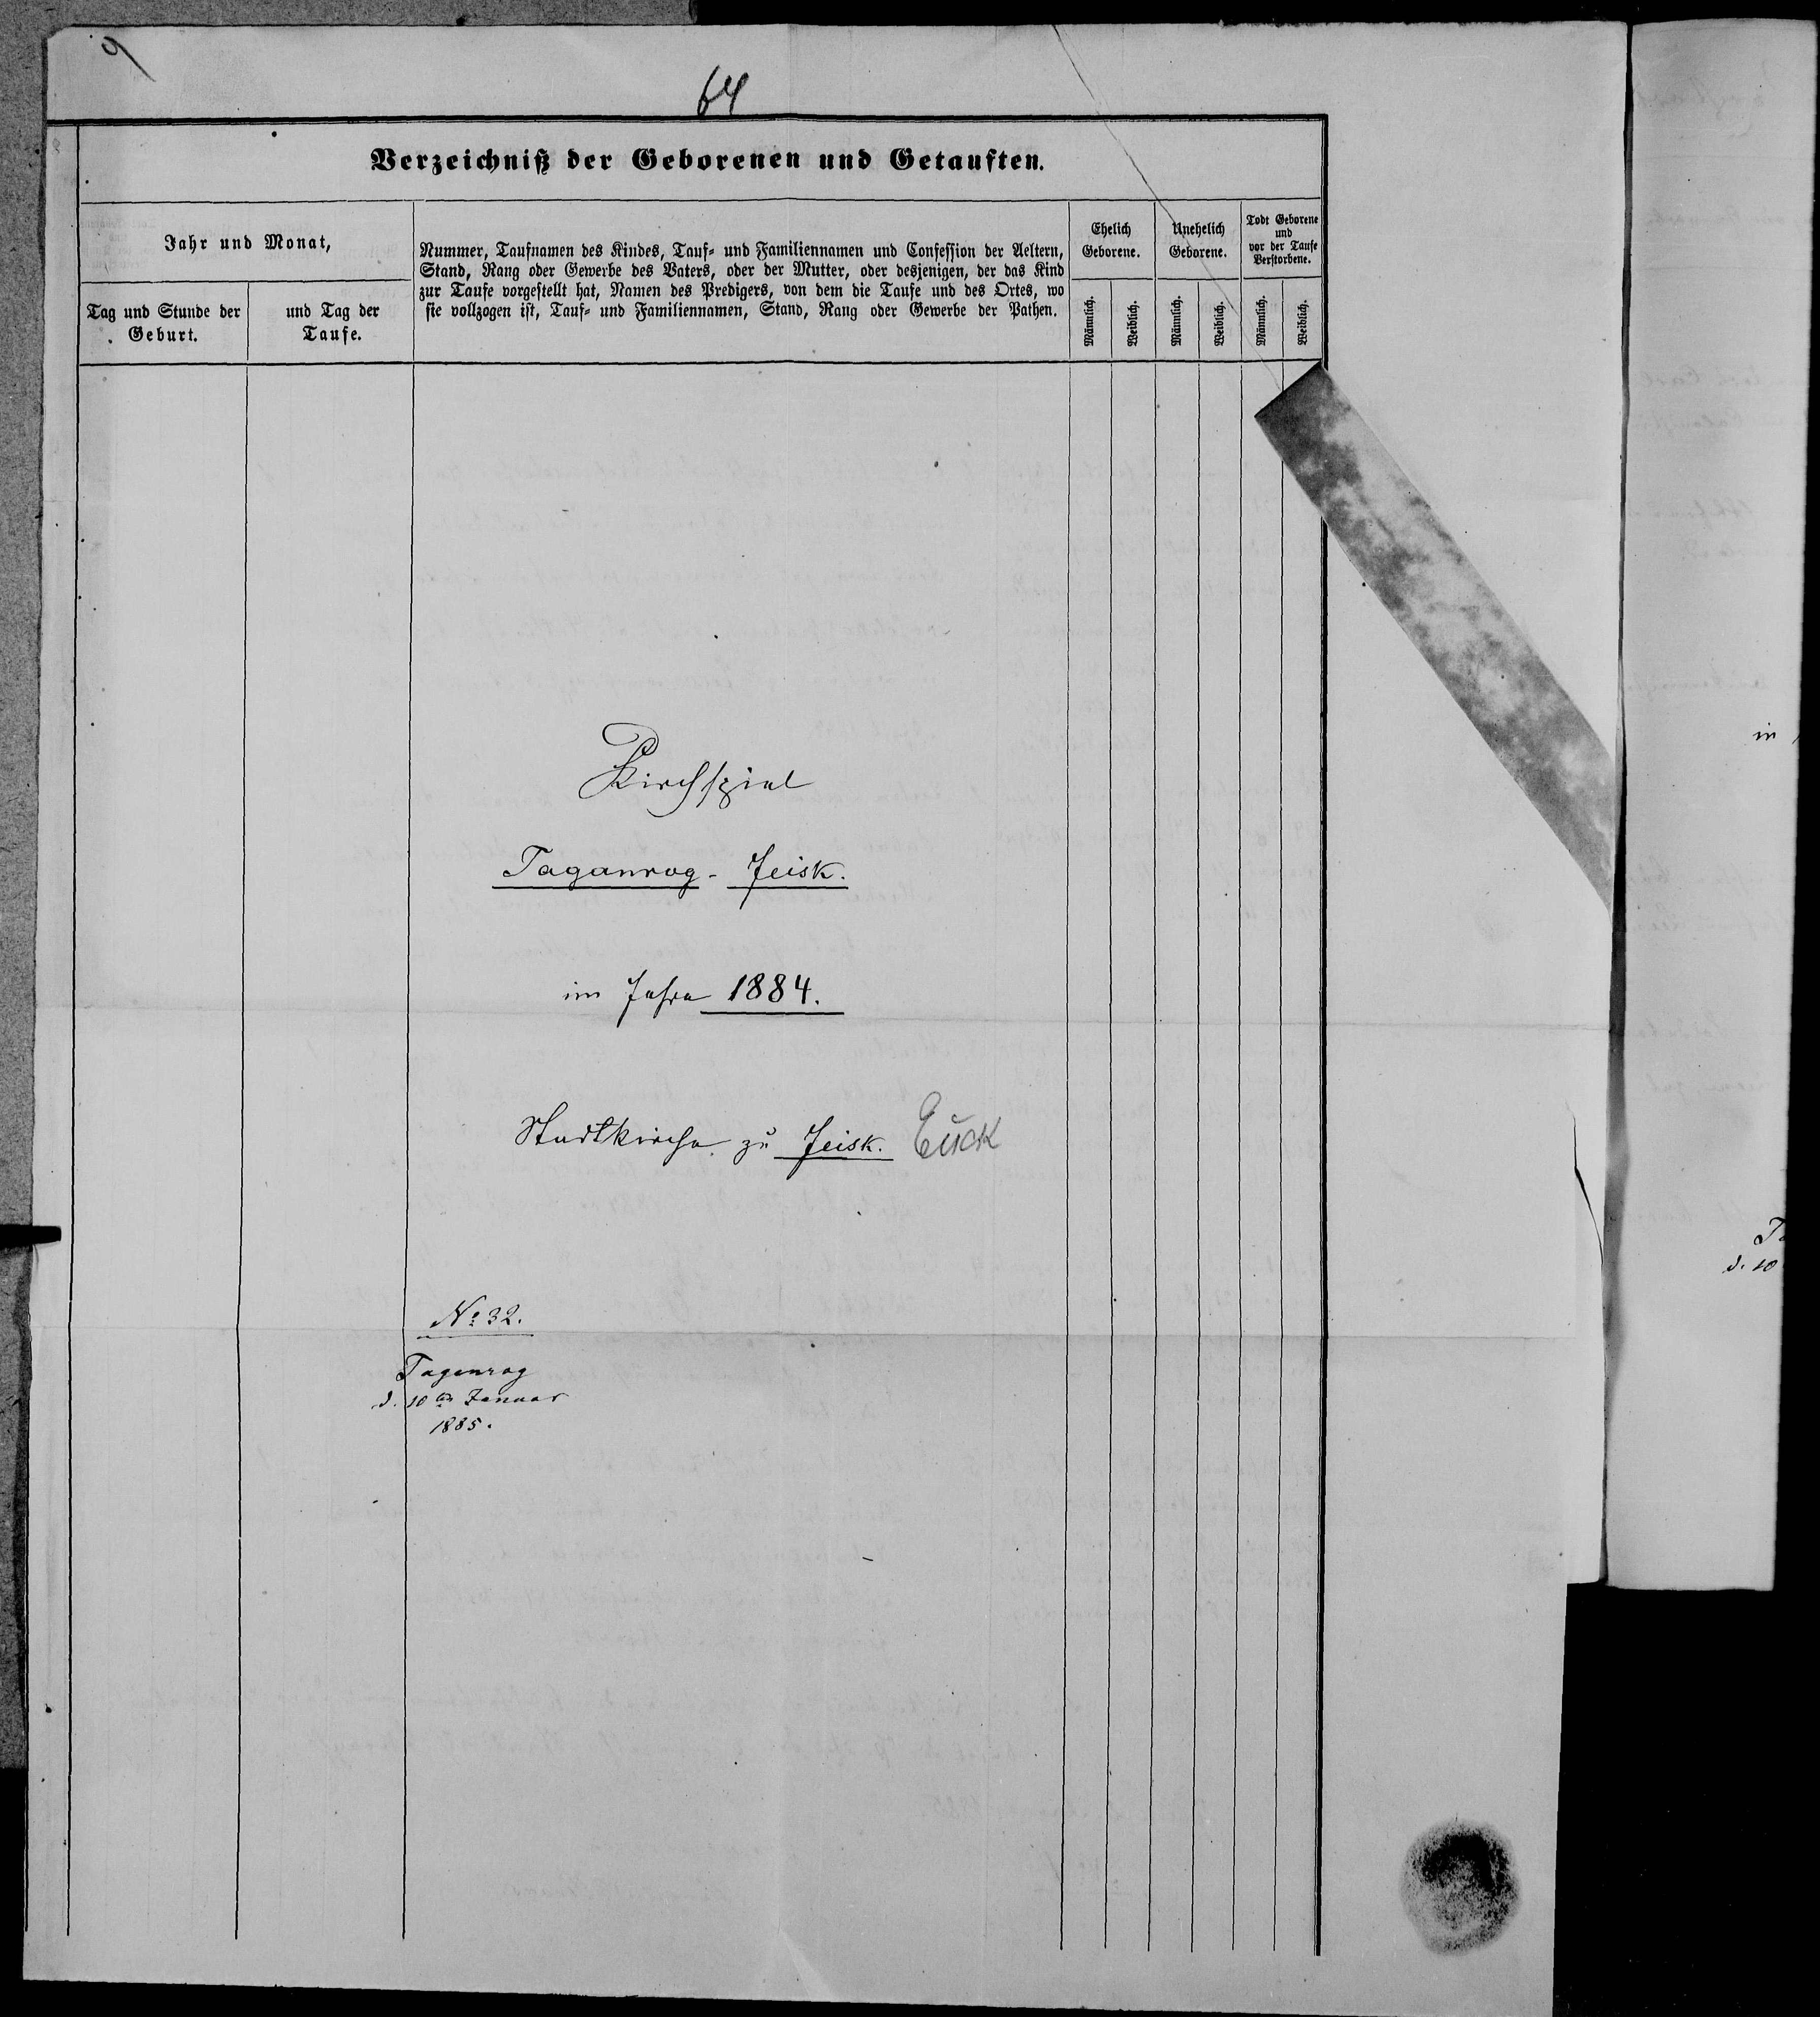 9
64
Verzeichniß der Geborenen und Getauften.
Jahr und Monat,
Tag und Stunde der
Geburt.
und Tag der
Taufe.
Nummer, Taufnamen des Kindes, Tauf- und Familiennamen und Confession der Aeltern,
Stand, Rang oder Gewerbe des Vaters, oder der Mutter, oder desjenigen, der das Kind
zur Taufe vorgestellt hat, Namen des Predigers, von dem die Taufe und des Ortes, wo
sie vollzogen ist, Tauf- und Familiennamen, Stand, Rang oder Gewerbe der Pathen.
Ehelich
Geborene.
Unehelich
Geborene.
Todt Geborene
und
vor der Taufe
Verstorbene.
Männlich.
Weiblich.
Männlich.
Weiblich.
Männlich.
Weiblich.
Kirchspiel
Taganrog - Jeisk.
im Jahre 1884.
Stadtkirche zu Jeisk. Ейск
№ 32.
Taganrog
d. 10ten Januar
1885.
in
d. 10